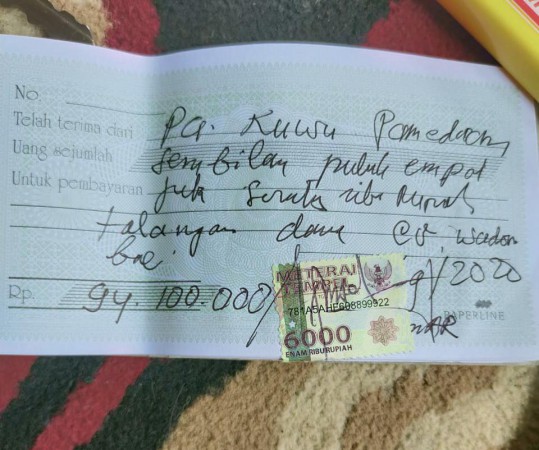 No
Telah terima dari Pa. Kuwu Pamedaran
Uang sejumlah Sembilan puluh empat
Untuk pembayaran juta Seratus ribu Rupiah
talangan dana CV. wadon
bae
9/2020
Rp. 94.100.000/
METERAI
TEMPEL
781A5AHF608899922
6000
ENAM RIBU RUPIAH
PAPERLINE